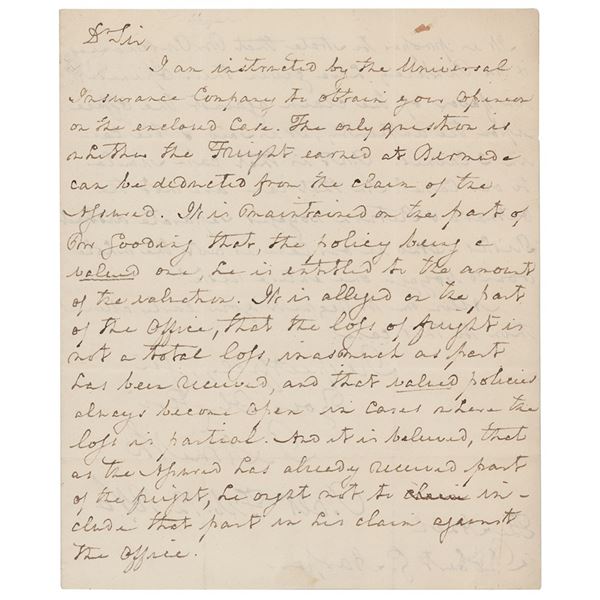 Dr Sir,
I am instructed by the Universal
Insurance Company to obtain your opinion
on the enclosed Case. The only question is
whether the Freight earned at Bermuda
can be deducted from the claim of the
Assured. It is maintained on the part of
Mr Gooding that, the policy being a
valued one, he is entitled to the amount
of the valuation. It is alleged on the part
of the Office, that the loss of freight is
not a total loss, inasmuch as part
has been received, and that valued policies
always become open in cases where the
loss is partial. And it is believed, that
as the Assured has already received part
of the freight, he ought not to claim in-
clude that part in his claim against
the Office.